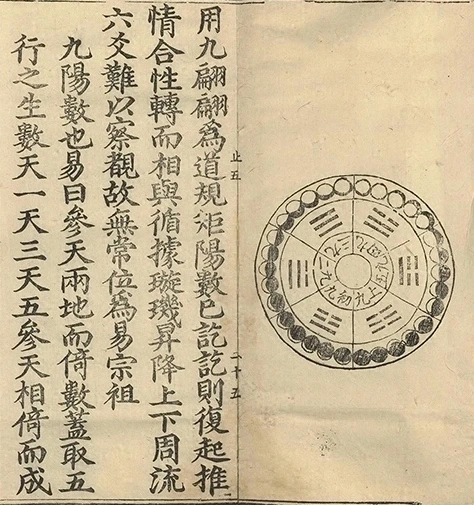 初九
九二
九三
九四
九五
上九
止五
二十五
用九翩翩爲道規矩陽數已訖訖則復起推
情合性轉而相與循據璇璣昇降上下周流
六爻難以察觀故無常位爲易宗祖
九陽數也易曰參天兩地而倚數蓋取五
行之生數天一天三天五參天相倚而成